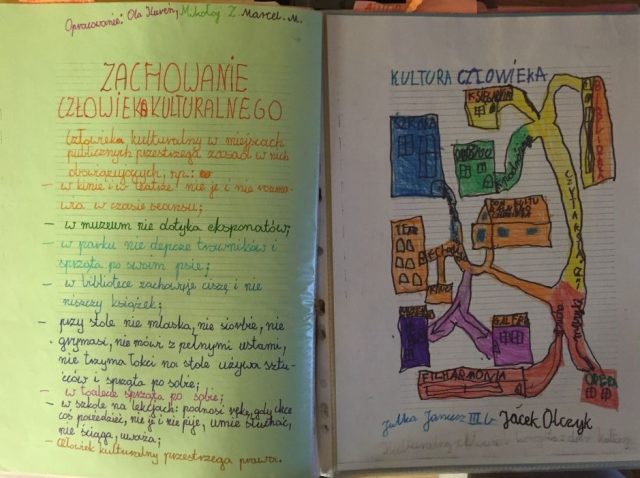 Opracowanie: Ola Mikołaj Z. Marcel. M.
ZACHOWANIE
CZŁOWIEKA KULTURALNEGO
Człowiek kulturalny w miejscach
publicznych przestrzega zasad w nich
obowiązujących, np.:
- w kinie i w teatrze nie je i nie rozma-
wia w czasie seansu;
- w muzeum nie dotyka eksponatów;
- w parku nie depcze trawników i
sprząta po swoim psie;
- w bibliotece zachowuje ciszę i nie
niszczy książek;
- przy stole nie mlaska, nie siorbie, nie
grymasi, nie mówi z pełnymi ustami,
nie trzyma łokci na stole używa sztu-
ćców i sprząta po sobie;
- w toalecie sprząta po sobie;
- w szkole na lekcjach: podnosi rękę, gdy chce
coś powiedzieć, nie je i nie pije, umie słuchać,
nie ściąga, uważa;
- Człowiek kulturalny przestrzega prawa.
KULTURA CZŁOWIEKA
KSIĘGARNIA
BIBLIOTEKA
SZKOŁA
CZYTANIE
DOM KULTU
TEATR
KINO
MUZEUM
GALERIA
FILHARMONIA
OPERA
Julka Janusz III b Jacek Olczyk